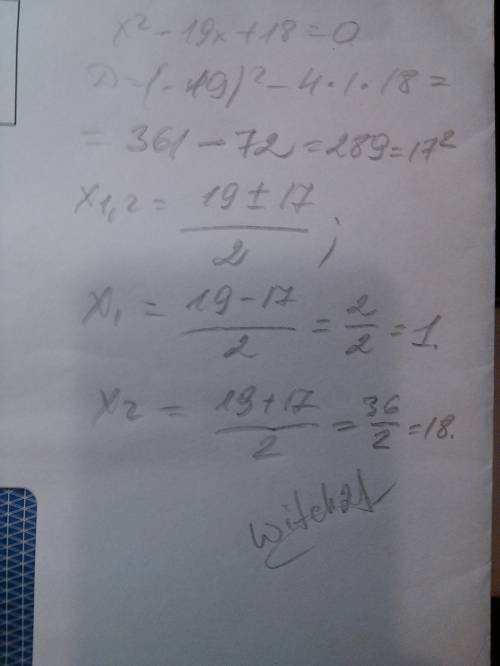 x² - 19x + 18 = 0
D = (-19)² - 4·1·18 =
= 361 - 72 = 289 = 17²
x1,2 = (19 ± 17)/2 ;
x₁ = (19 - 17)/2 = 2/2 = 1.
x₂ = (19 + 17)/2 = 36/2 = 18.
witch21